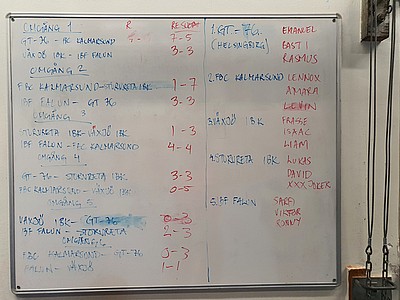 OMGÅNG 1 R RESULTAT
GT-76 - FBC KALMARSUND 7-5
VÄXJÖ IBK - IBF FALUN 3-3
OMGÅNG 2
FBC KALMARSUND - STORVRETA IBK 1-7
IBF FALUN - GT 76 3-3
OMGÅNG 3
STORVRETA IBK - VÄXJÖ IBK 1-3
IBF FALUN - FBC KALMARSUND 4-4
OMGÅNG 4
GT-76 - STORVRETA IBK 3-3
FBC KALMARSUND - VÄXJÖ IBK 0-5
OMGÅNG 5
VÄXJÖ IBK - GT-76 0-3
IBF FALUN - STORVRETA 2-3
OMGÅNG 6
FBC KALMARSUND - GT-76 3-3
FALUN - VÄXJÖ 1-1
1. GT-76. EMANUEL
(HELSINGBORG) EAST 1
RASMUS
2. FBC KALMARSUND LENNOX
AMARA
3. VÄXJÖ IBK FRASSE
ISAAC
LIAM
4. STORVRETA IBK LUKAS
DAVID
XXX JOKER
5. IBF FALUN SARGI
VIKTOR
RONNY